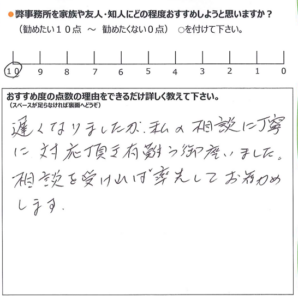 ●弊事務所を家族や友人・知人にどの程度おすすめしようと思いますか？
（勧めたい１０点 ～ 勧めたくない０点） ○を付けて下さい。
10 9 8 7 6 5 4 3 2 1 0
おすすめ度の点数の理由をできるだけ詳しく教えて下さい。
（スペースが足りなければ裏面へどうぞ）
遅くなりましたが、私の相談に丁寧
に対応頂き有難う御座いました。
相談を受ければ率先してお勧め
します.